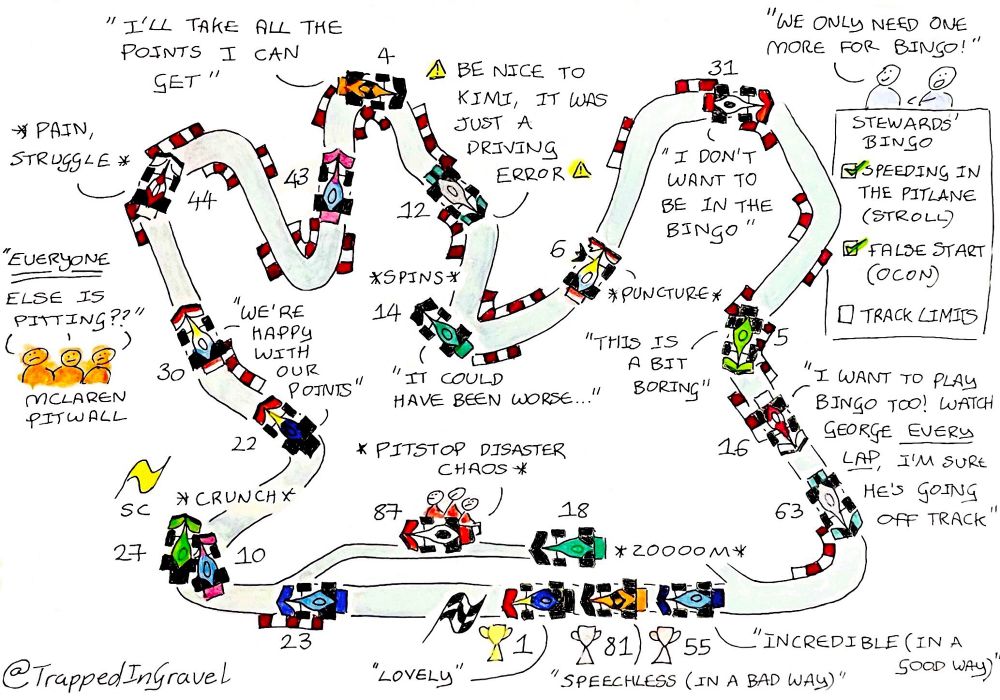 "I'LL TAKE ALL THE
POINTS I CAN
GET"
4
⚠ BE NICE TO
KIMI, IT WAS
JUST A
DRIVING
ERROR ⚠
31
"WE ONLY NEED ONE
MORE FOR BINGO!"
STEWARDS'
BINGO
SPEEDING IN
THE PITLANE
(STROLL)
FALSE START
(OCON)
TRACK LIMITS
*PAIN,
STRUGGLE*
44
43
12
"I DON'T
WANT TO
BE IN THE
BINGO"
"EVERYONE
ELSE IS
PITTING??"
MCLAREN
PITWALL
30
"WE'RE
HAPPY
WITH
OUR
POINTS"
*SPINS*
14
"IT COULD
HAVE BEEN WORSE..."
6
*PUNCTURE*
"THIS IS
A BIT
BORING"
5
16
"I WANT TO PLAY
BINGO TOO! WATCH
GEORGE EVERY
LAP, I'M SURE
HE'S GOING
OFF TRACK"
63
22
SC
*CRUNCH*
27
10
*PITSTOP DISASTER
CHAOS*
87
18
*20000M*
23
1
81
55
"LOVELY"
"SPEECHLESS (IN A BAD WAY)"
"INCREDIBLE (IN A
GOOD WAY)"
@TrappedInGravel